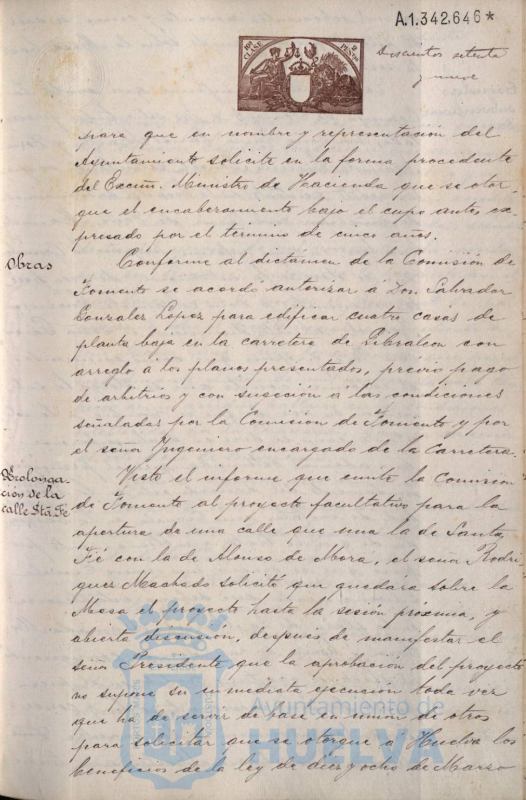 A.1.342.646*
10ª CLASE
2 PESETAS
Doscientos setenta
y nueve
para que en nombre y representación del
Ayuntamiento solicite en la forma procedente
del Excmo. Ministro de Hacienda que se otor-
gue el encabezamiento bajo el cupo antes ex-
presado por el término de cinco años.
Obras
Conforme al dictámen de la Comisión de
Fomento se acordó autorizar á Don Salvador
Gonzalez Lopez para edificar cuatro casas de
planta baja en la carretera de Gibraleon con
arreglo á los planos presentados, previo pago
de arbitrios y con sujeción á las condiciones
señaladas por la Comision de Fomento y por
el señor Ingeniero encargado de la Carretera.
Prolonga-
cion de la
calle Stª Fé
Visto el informe que emite la Comision
de Fomento al proyecto facultativo para la
apertura de una calle que una la de Santa
Fé con la de Alonso de Mora, el señor Rodri-
guez Machado solicitó que quedára sobre la
Mesa el proyecto hasta la sesión próxima, y
abierta discusión, despues de manifestar el
señor Presidente que la aprobación del proyecto
no supone su inmediata ejecución toda vez
que ha de servir de base en union de otros
para solicitar que se otorgue á Huelva los
beneficios de la ley de diez y ocho de Marzo
Ayuntamiento de
HUELVA